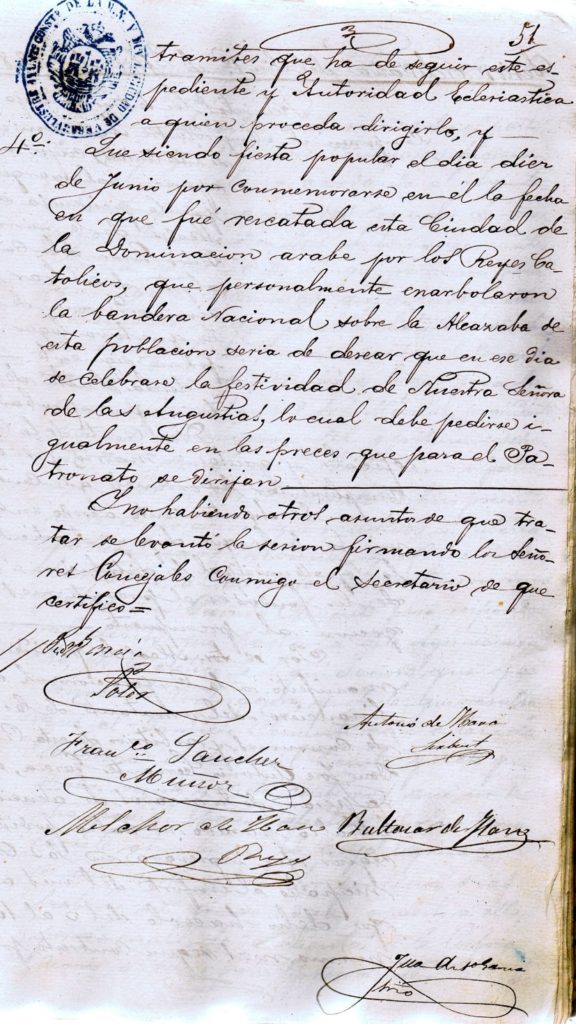 51
tramites que ha de seguir este es-
pediente y Autoridad Eclesiastica
a quien proceda dirigirlo, y —
4º: Que siendo fiesta popular el dia diez
de Junio por conmemorarse en él la fecha
en que fué rescatada esta Ciudad de
la Dominacion arabe por los Reyes Ca-
tolicos, que personalmente enarbolaron
la bandera Nacional sobre la Alcazaba de
esta poblacion seria de desear que en ese dia
se celebrase la festividad de Nuestra Señora
de las Angustias, lo cual debe pedirse i-
gualmente en las preces que para el Pa-
tronato se dirijan
Y no habiendo otros asuntos de que tra-
tar se levantó la sesion firmando los Seño-
res Concejales conmigo el Secretario de que
certifico=
Antonio de Haro
Franco. Sanchez
Muñoz
Melchor de Haro
Baltasar de Haro